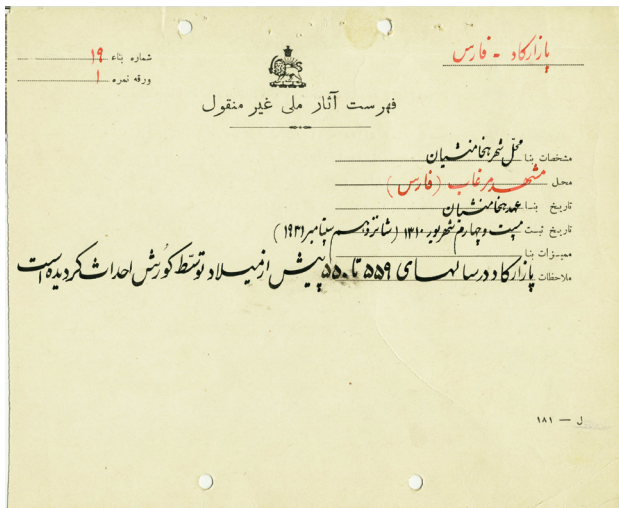 پازارگاد - فارس
شماره بناء ۱۹
ورقه نمره ۱
فهرست آثار ملی غیر منقول
مشخصات بنا محلّ شهر هخامنشیان
محل مشهد مرغاب (فارس)
تاریخ بنا عهد هخامنشیان
تاریخ ثبت بیست و چهارم شهریور ۱۳۱۰ (شانزدهم سپتامبر ۱۹۳۱)
ممیزات بنا
ملاحظات پازارگاد در سالهای ۵۵۹ تا ۵۵۰ پیش از میلاد توسّط کورُش احداث گردیده است
ل — ۱۸۱